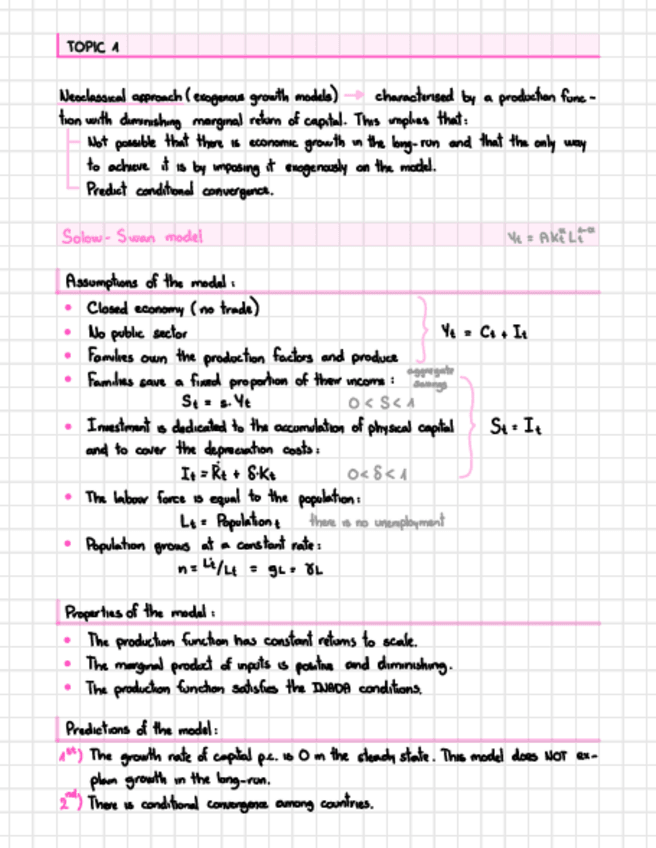 TOPIC 1
Neoclassical approach (exogenous growth models) → characterised by a production func-
tion with diminishing marginal return of capital. This implies that:
Not possible that there is economic growth in the long-run and that the only way
to achieve it is by imposing it exogenously on the model.
Predict conditional convergence.
Solow-Swan model Yt = AKt^α Lt^1-α
Assumptions of the model:
• Closed economy (no trade)
• No public sector Yt = Ct + It
• Families own the production factors and produce
• Families save a fixed proportion of their income: aggregate savings
St = s·Yt 0 < S < 1
• Investment is dedicated to the accumulation of physical capital St = It
and to cover the depreciation costs:
It = K̇t + δ·Kt 0 < δ < 1
• The labour force is equal to the population:
Lt = Population t there is no unemployment
• Population grows at a constant rate:
n = L̇t/Lt = gL = γL
Properties of the model:
• The production function has constant returns to scale.
• The marginal product of inputs is positive and diminishing.
• The production function satisfies the INADA conditions.
Predictions of the model:
1st) The growth rate of capital p.c. is 0 in the steady state. This model does NOT ex-
plain growth in the long-run.
2nd) There is conditional convergence among countries.